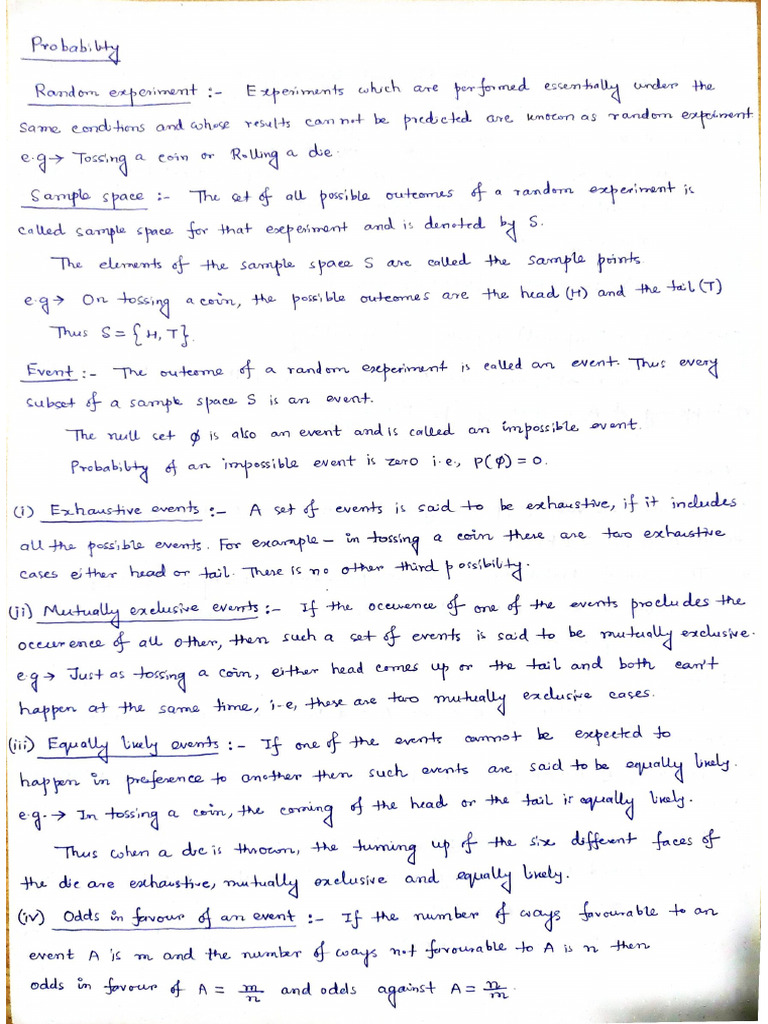 Probability
Random experiment :- Experiments which are performed essentially under the
same conditions and whose results can not be predicted are known as random experiment
e.g → Tossing a coin or Rolling a die.
Sample space :- The set of all possible outcomes of a random experiment is
called sample space for that experiment and is denoted by S.
The elements of the sample space S are called the sample points
e.g → On tossing a coin, the possible outcomes are the head (H) and the tail (T)
Thus S = {H, T}.
Event :- The outcome of a random experiment is called an event. Thus every
subset of a sample space S is an event.
The null set ϕ is also an event and is called an impossible event.
Probability of an impossible event is zero i.e., P(ϕ) = 0.
(i) Exhaustive events :- A set of events is said to be exhaustive, if it includes
all the possible events. For example – in tossing a coin there are two exhaustive
cases either head or tail. There is no other third possibility.
(ii) Mutually exclusive events :- If the occurence of one of the events procludes the
occurrence of all other, then such a set of events is said to be mutually exclusive.
e.g → Just as tossing a coin, either head comes up or the tail and both can't
happen at the same time, i-e, these are two mutually exclusive cases.
(iii) Equally likely events :- If one of the events cannot be expected to
happen in preference to another then such events are said to be equally likely.
e.g. → In tossing a coin, the coming of the head or the tail is equally likely.
Thus when a die is thrown, the turning up of the six different faces of
the die are exhaustive, mutually exclusive and equally likely.
(iv) Odds in favour of an event :- If the number of ways favourable to an
event A is m and the number of ways not favourable to A is n then
odds in favour of A = m/n and odds against A = n/m.